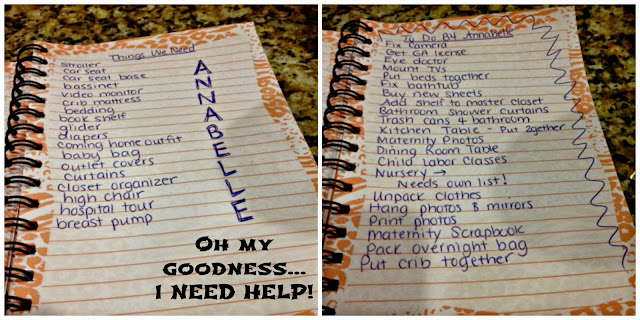 Things We Need
stroller
car seat
car seat base
bassinet
video monitor
crib mattress
bedding
book shelf
glider
diapers
coming home outfit
baby bag
outlet covers
curtains
closet organizer
high chair
hospital tour
breast pump
ANNABELLE
OH MY
GOODNESS...
I NEED HELP!
To Do B4 Annabelle
Fix camera
Get GA license
Eye doctor
Mount TVs
Put beds together
Fix bathtub
Buy new sheets
Add shelf to master closet
Bathroom Shower Curtains
Trash cans 4 bathroom
Kitchen Table - Put 2gether
Maternity Photos
Dining Room Table
Child Labor Classes
Nursery →
Needs own list!
Unpack Clothes
Hang photos & mirrors
Print photos
Maternity Scrapbook
Pack overnight bag
Put crib together